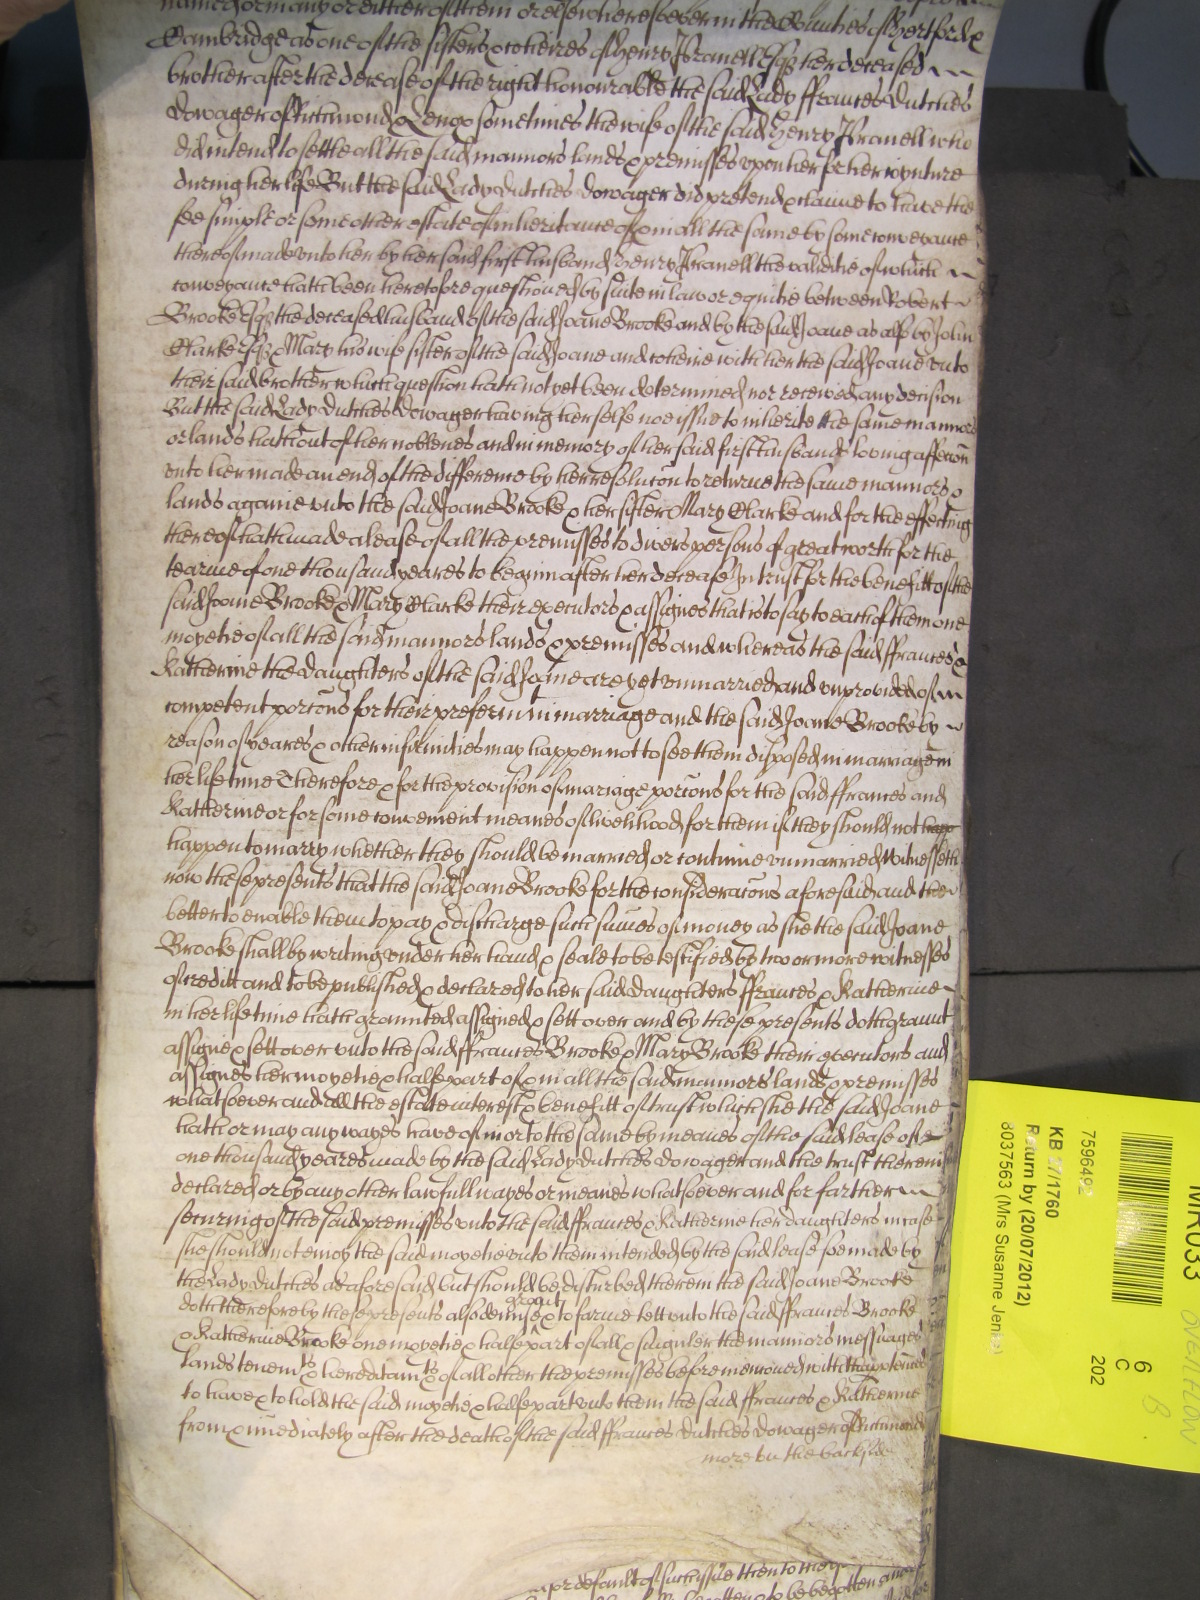 named or in any or either of them or elsewhere soever in the Counties of Hertford &
Cambridge as one of the sisters & coheires of Henry Pranell Esqr her deceased
brother after the decease of the right honourable the said Lady ffrances Dutches
dowager of Richmond & Lenox sometimes the wife of the said Henry Pranell who
did intend to settle all the said mannors lands & premisses upon her for her ioynture
during her life But the said Lady Dutches dowager did pretend & claime to have the
fee simple or some other estate of inheritance of & in all the same by some conveyance
thereof made unto her by her said first husband Henry Pranell the validitie of which
conveyance hath been heretofore questioned by suite in law or equitie between Robert
Brooke Esqr the deceased husband of the said Joane Brooke and by the said Joane as also by John
Clarke Esqr & Mary his wife sister of the said Joane and coheire with her the said Joane unto
their said brother which question hath not yet been determined nor received any decision
But the said Lady Dutches dowager having herselfe noe issue to inherite the same mannors
or lands hath out of her noblenes and in memory of her said first husbands loving affeccon
unto her made an end of the difference by her resolucon to returne the same mannors &
lands againe unto the said Joane Brooke & her sister Mary Clarke and for the effecting
thereof hath made a lease of all the premisses to divers persons of great worth for the
tearme of one thousand yeares to begin after her decease In trust for the benefitt of the
said Joane Brooke & Mary Clarke their executors & assignes that is to say to each of them one
moyetie of all the said mannors lands & premisses and whereas the said ffrances &
Katherine the daughters of the said Joane are yet unmarried and unprovided of
competent porcons for their preferm in marriage and the said Joane Brooke by
reason of yeares & other infirmities may happen not to see them disposed in marriage in
her life time Therefore & for the provision of mariage porcons for the said ffrances and
Katherine or for some convenient meanes of livelihood for them if they should not happ
happen to marry whether they should be married or continue unmarried Witnesseth
now these presents that the said Joane Brooke for the consideracons aforesaid and the
better to enable them to pay & discharge such sumes of money as she the said Joane
Brooke shall by writing under her hand & seale to be testified by two or more witnesses
of creditt and to be published & declared to her said daughters ffrances & Katherine
in her life time hath graunted assigned & sett over and by these presents doth graunt
assigne & sett over unto the said ffrances Brooke & Mary Brooke their executors and
assignes her moyetie & halfe part of & in all the said mannors lands & premisses
whatsoever and all the estate interest & benefitt of trust which she the said Joane
hath or may any wayes have of in or to the same by meanes of the said lease of
one thousand yeares made by the said Lady Dutches dowager and the trust therein
declared or by any other lawfull wayes or meanes whatsoever and for farther
securing of the said premisses unto the said ffrances & Katherine her daughters in case
she should not enioy the said moyetie unto them intended by the said lease soe made by
the Lady Dutches as aforesaid but should be disturbed therein the said Joane Brooke
doth therefore by these presents alsoe demise graunt & to farme lett unto the said ffrances Brooke
& Katherine Brooke one moyetie & halfe part of all & singuler the mannors messuages
lands tenemts & hereditamts & of all other the premisses before mencioned with thapptenncs
to have & to hold the said moyetie & halfe part unto them the said ffrances & Katherine
from & imediately after the death of the said ffrances Dutches Dowager of Richmond
more on the backside
or default of such issue then to the
begotten or to be begotten and
MR033
7596492
6
C
202
KB 27/1760
Return by (20/07/2012)
8037563 (Mrs Susanne Jen